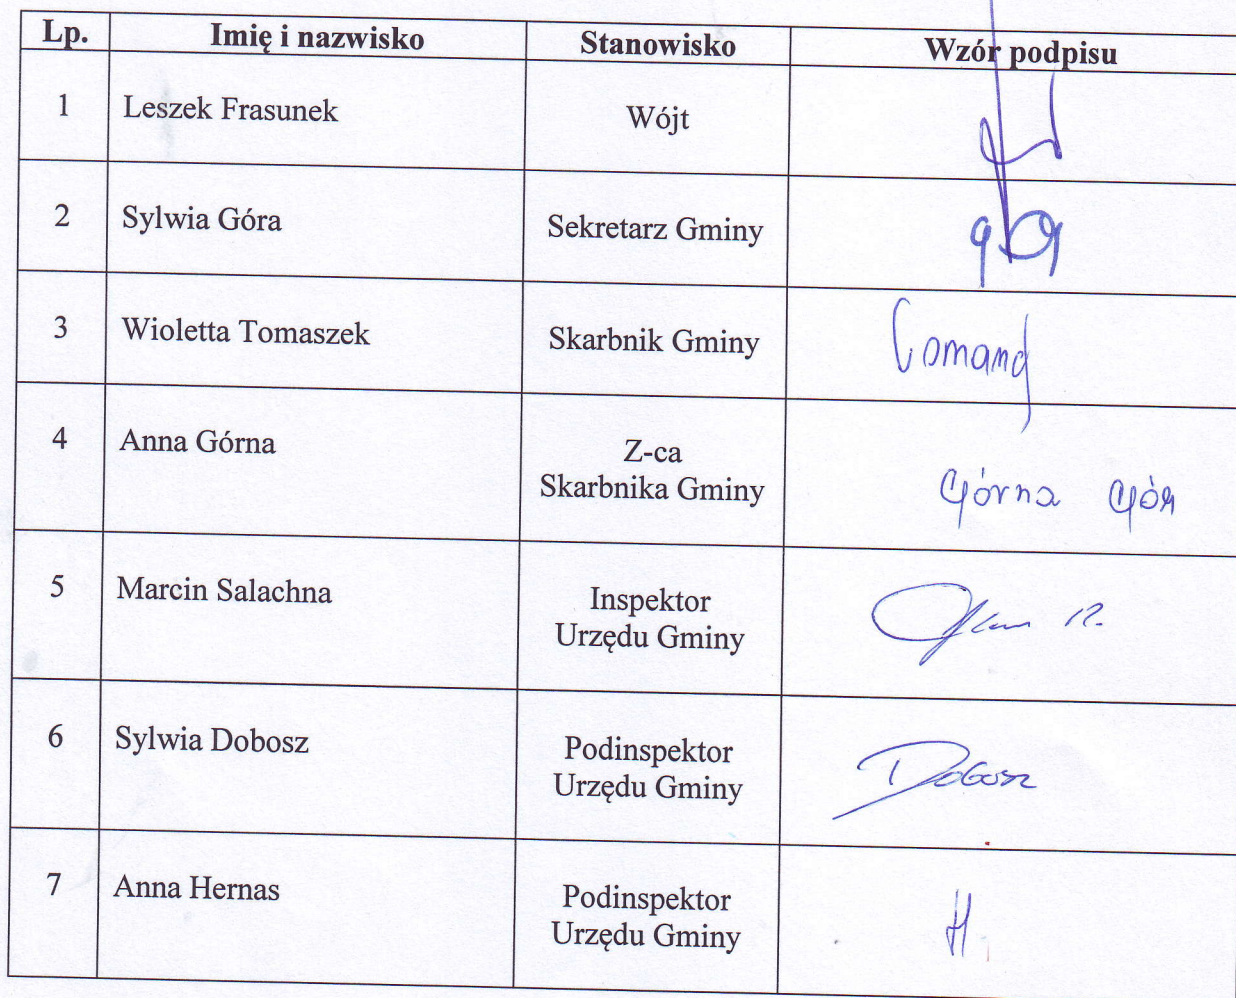 Lp. Imię i nazwisko Stanowisko Wzór podpisu
1 Leszek Frasunek Wójt
2 Sylwia Góra Sekretarz Gminy
3 Wioletta Tomaszek Skarbnik Gminy
4 Anna Górna Z-ca
Skarbnika Gminy Górna
5 Marcin Salachna Inspektor
Urzędu Gminy
6 Sylwia Dobosz Podinspektor
Urzędu Gminy Dobosz
7 Anna Hernas Podinspektor
Urzędu Gminy H.